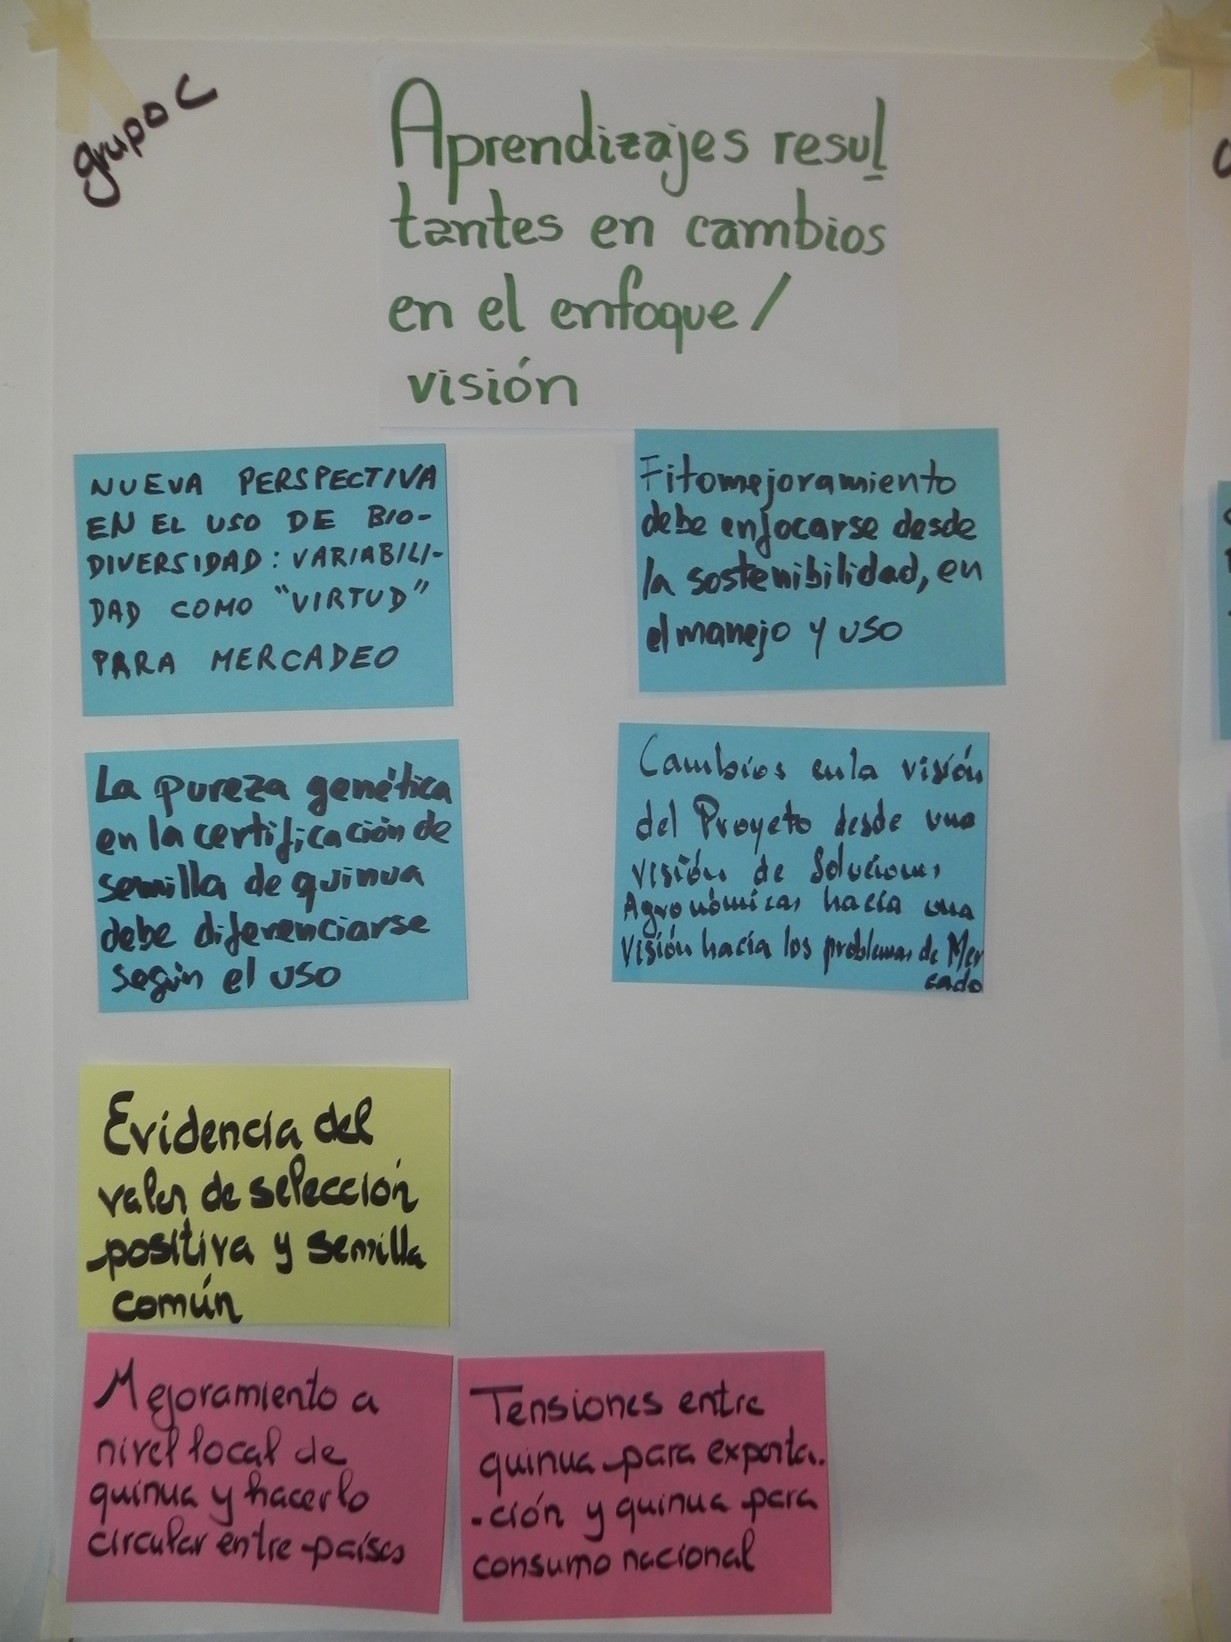 grupo C
Aprendizajes resul
tantes en cambios
en el enfoque /
visión
NUEVA PERSPECTIVA
EN EL USO DE BIO-
DIVERSIDAD: VARIABILI-
DAD COMO "VIRTUD"
PARA MERCADEO
Fitomejoramiento
debe enfocarse desde
la sostenibilidad, en
el manejo y uso
La pureza genética
en la certificación de
semilla de quinua
debe diferenciarse
según el uso
Cambios en la visión
del Proyeto desde una
visión de Soluciones
Agronómicas hacía una
Visión hacía los problemas de Mer
cado
Evidencia del
valor de selección
positiva y semilla
común
Mejoramiento a
nivel local de
quinua y hacerlo
circular entre países
Tensiones entre
quinua para exporta-
-ción y quinua para
consumo nacional